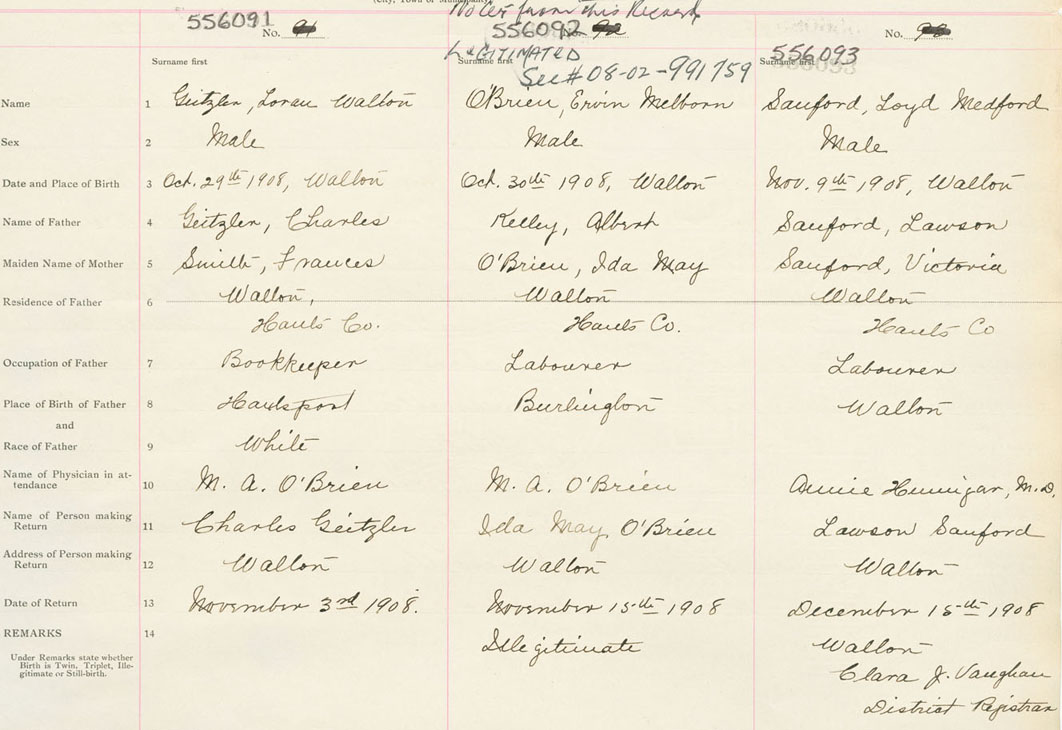 (City, Town or Municipality)
No Cer from this Record
556091 No. 91
556092 92
556093 No. 93
LEGITIMATED
See # 08-02-991759
Surname first Surname first Surname first
Name 1 Geitzler, Loran Walton O'Brien, Ervin Melborn Sanford, Loyd Medford
Sex 2 Male Male Male
Date and Place of Birth 3 Oct. 29th 1908, Walton Oct. 30th 1908, Walton Nov. 9th 1908, Walton
Name of Father 4 Geitzler, Charles Kelley, Albert Sanford, Lawson
Maiden Name of Mother 5 Smith, Frances O'Brien, Ida May Sanford, Victoria
Residence of Father 6 Walton, Walton Walton
Hants Co. Hants Co. Hants Co
Occupation of Father 7 Bookkeeper Labourer Labourer
Place of Birth of Father 8 Hantsport Burlington Walton
and
Race of Father 9 White
Name of Physician in at-
tendance 10 M. A. O'Brien M. A. O'Brien Annie Hennigar, M.D.
Name of Person making
Return 11 Charles Geitzler Ida May O'Brien Lawson Sanford
Address of Person making
Return 12 Walton Walton Walton
Date of Return 13 November 3rd 1908. November 15th 1908 December 15th 1908
REMARKS 14 Illegitimate Walton
Under Remarks state whether
Birth is Twin, Triplet, Ille-
gitimate or Still-birth.
Clara J. Vaughan
District Registrar